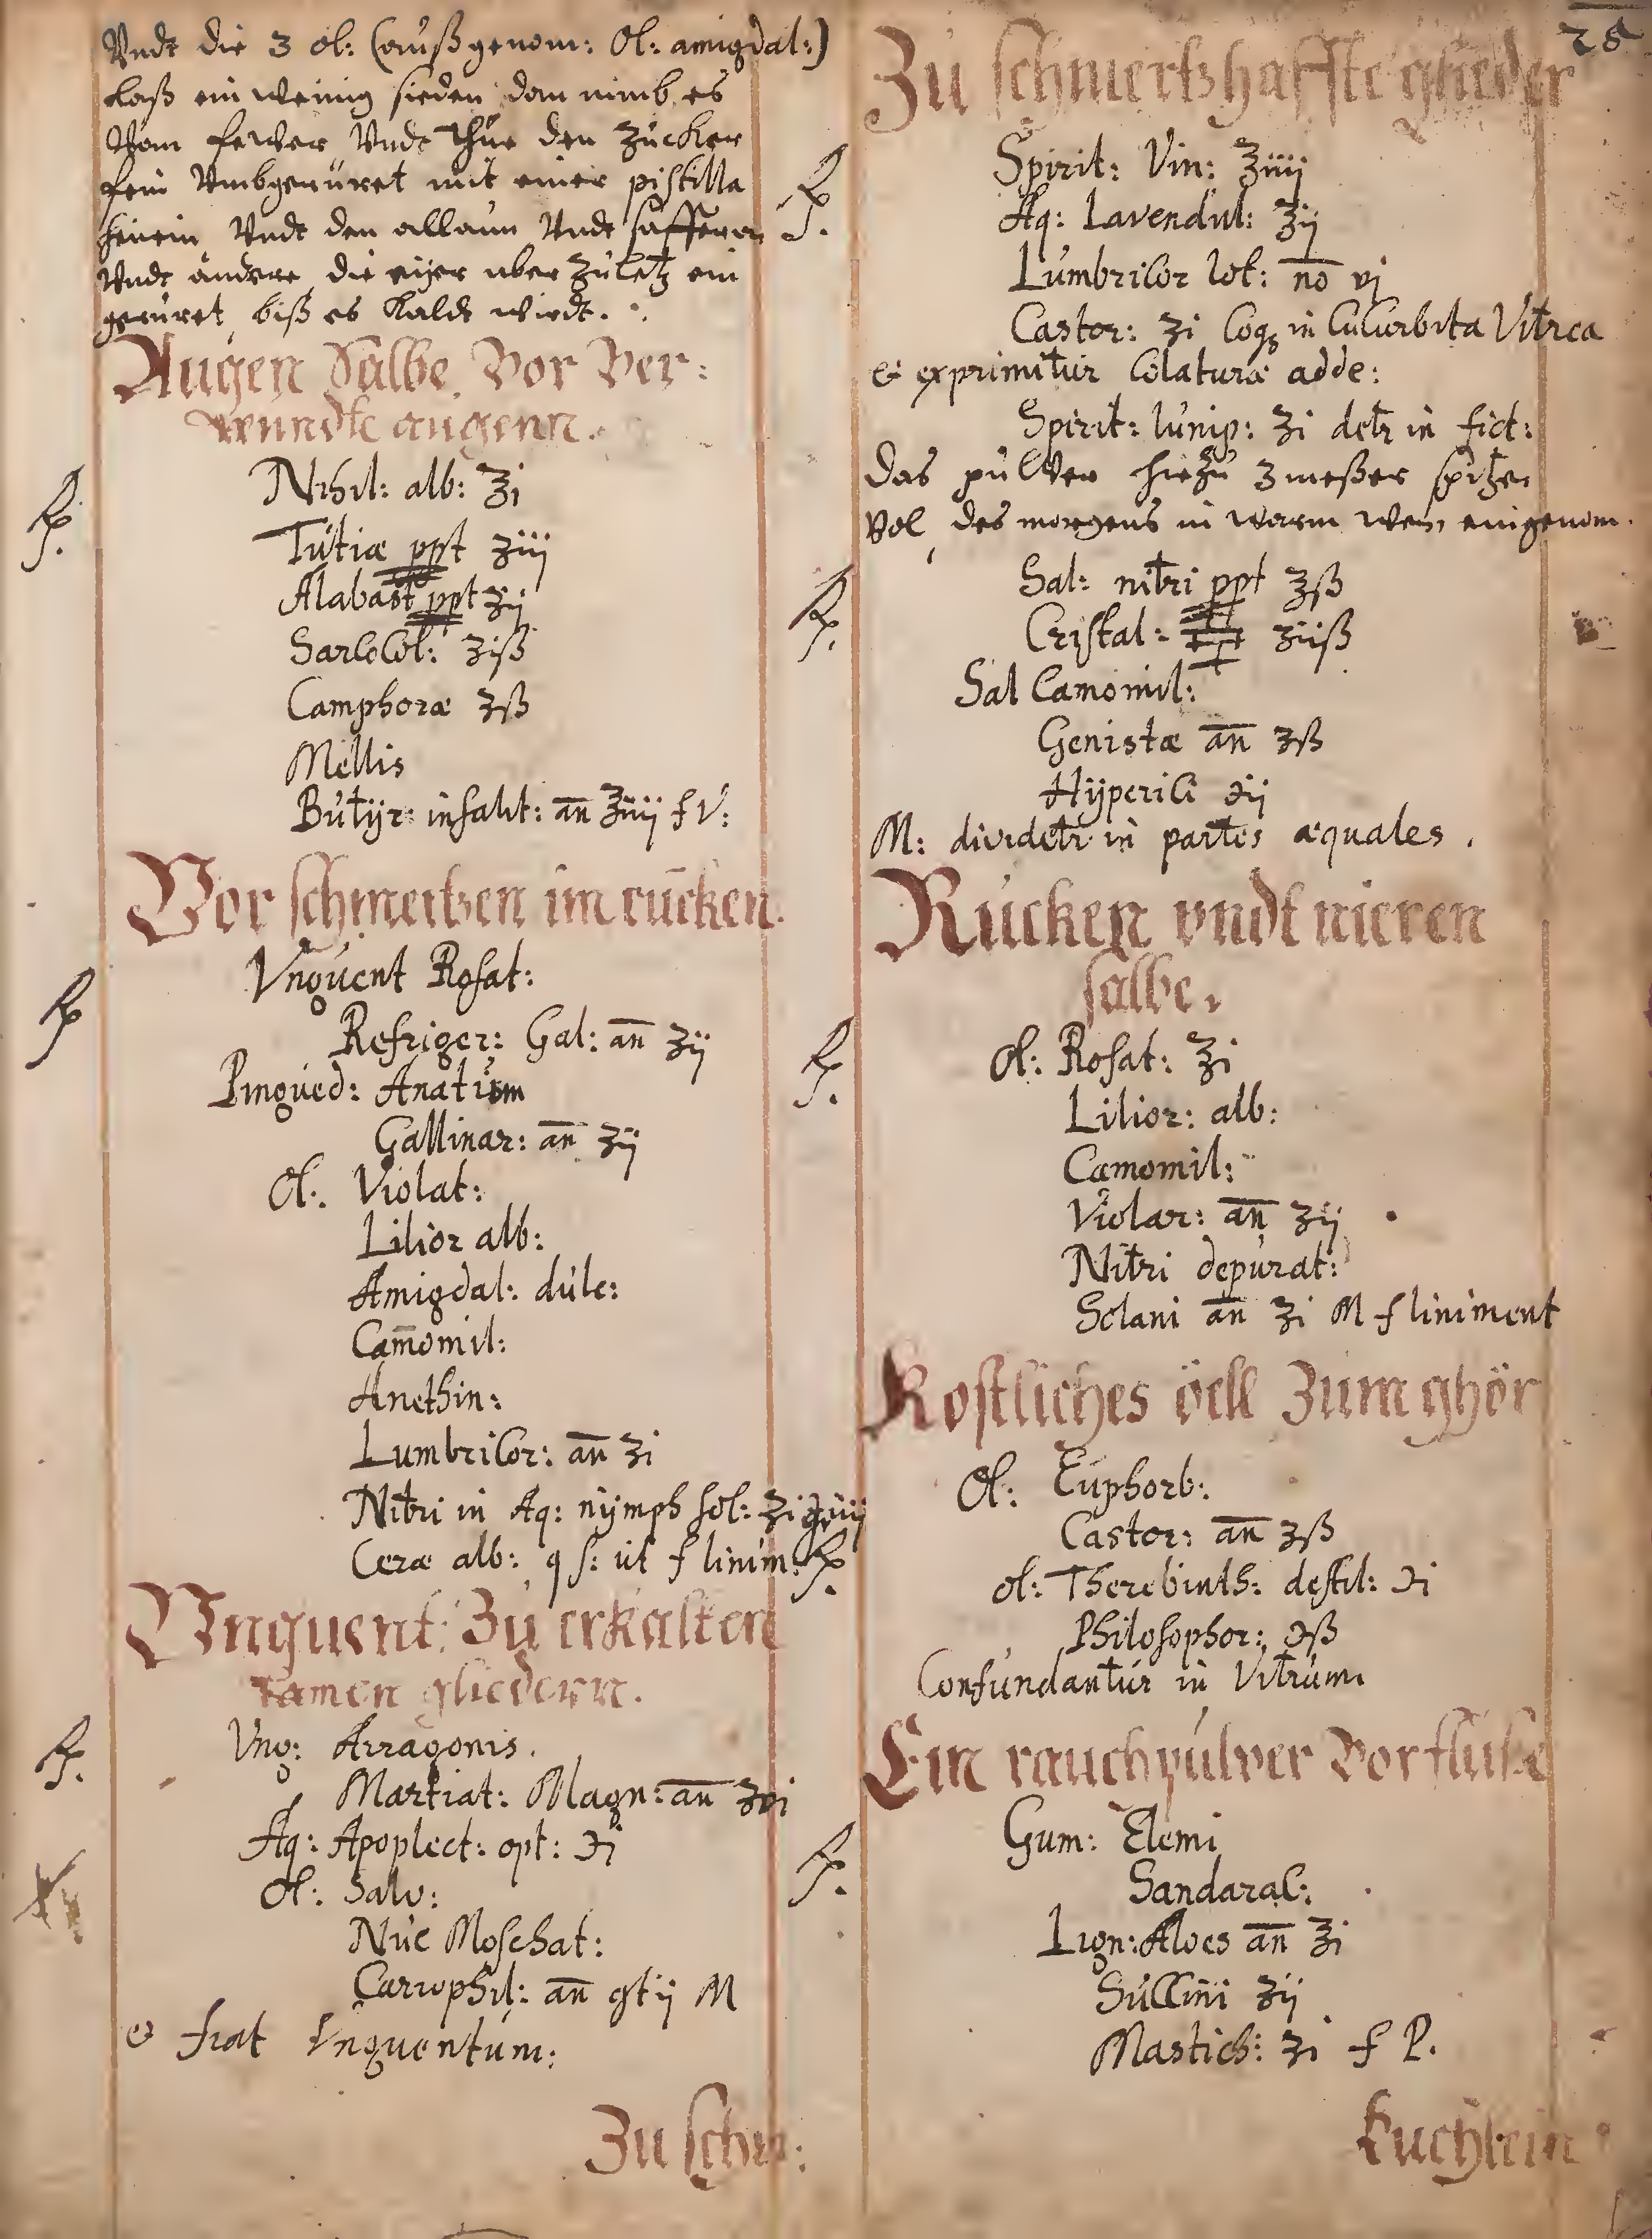 Vndt die 3 ol: (außgenom: Ol: amigdal:)
Laß ein wenig sieden dan nimb es
Vom fewer Vndt thue den zucker
fein Vmbgerüret mit einer pistilla
hinein Vndt den allaun Vndt safferan
Vndt die eijer aber zuletz ein
gerüret biß es kaldt wirdt.
Augen Salbe Vor Ver:
wundte augenn.
Rp. Nihil: alb: ℥i
Tutiæ ppt ʒiij
Alabast ppt ʒij
Sarcocol: ʒiß
Camphoræ ʒß
Mellis
Butÿr: insalit: an ℥iiij f V:
Vor schmertzen im rücken.
Rp Vnguent Rosat:
Refriger: Gal: an ʒij
Pingued: Anatum
Gallinar: an ʒij
Ol: Violat:
Lilior alb:
Amigdal: dulc:
Camomil:
Anethin:
Lumbricor: an ʒi
Nitri in Aq: nÿmph sol: ʒi
Ceræ alb: q s: ut f linim.
Vnguent: Zu erkalten
lamen gliedern.
Rp. Vng: Arragonis.
Martiat: Magn: an ʒvi
Aq: Apoplect: opt: ℈i
Ol: Salv:
Nuc Moschat:
Carrophil: an gt ij M
& fiat Vnguentum:
Zu schm:
28
Zu schmertzhaffte glieder
Rp. Spirit: Vin: ℥iiij
Aq: Lavendul: ℥ij
Lumbricor lot: no vj
Castor: ʒi Coq in Cucurbita Vitrea
& exprimitur Colaturæ adde:
Spirit: Iunip: ʒi detr in fict:
Das pulver hiezu 3 meßer spitzen
Vol, des morgens in warm wein eingenom.
Rp. Sal: nitri ppt ʒß
Cristal: ʒiiß
Sal Camomil:
Genistæ an ʒß
Hÿperici ℈ij
M: dividetr in partes æquales.
Rücken vndt nieren
salbe.
Rp. Ol: Rosat: ℥i
Lilior: alb:
Camomil:
Violar: an ʒij
Nitri depurat:
Solani an ʒi M f liniment
Kostliches öell zum ghör
Rp. Ol: Euphorb:
Castor: an ʒß
Ol: Therebinth: destil: ℈i
Philosophor: ℈ß
Confundantur in Vitrum
Ein rauchpulver Vor fluße
Rp. Gum: Elemi
Sandarac:
Lign: Aloes an ℥i
Succini ʒij
Mastich: ʒi f P.
Kuchlein